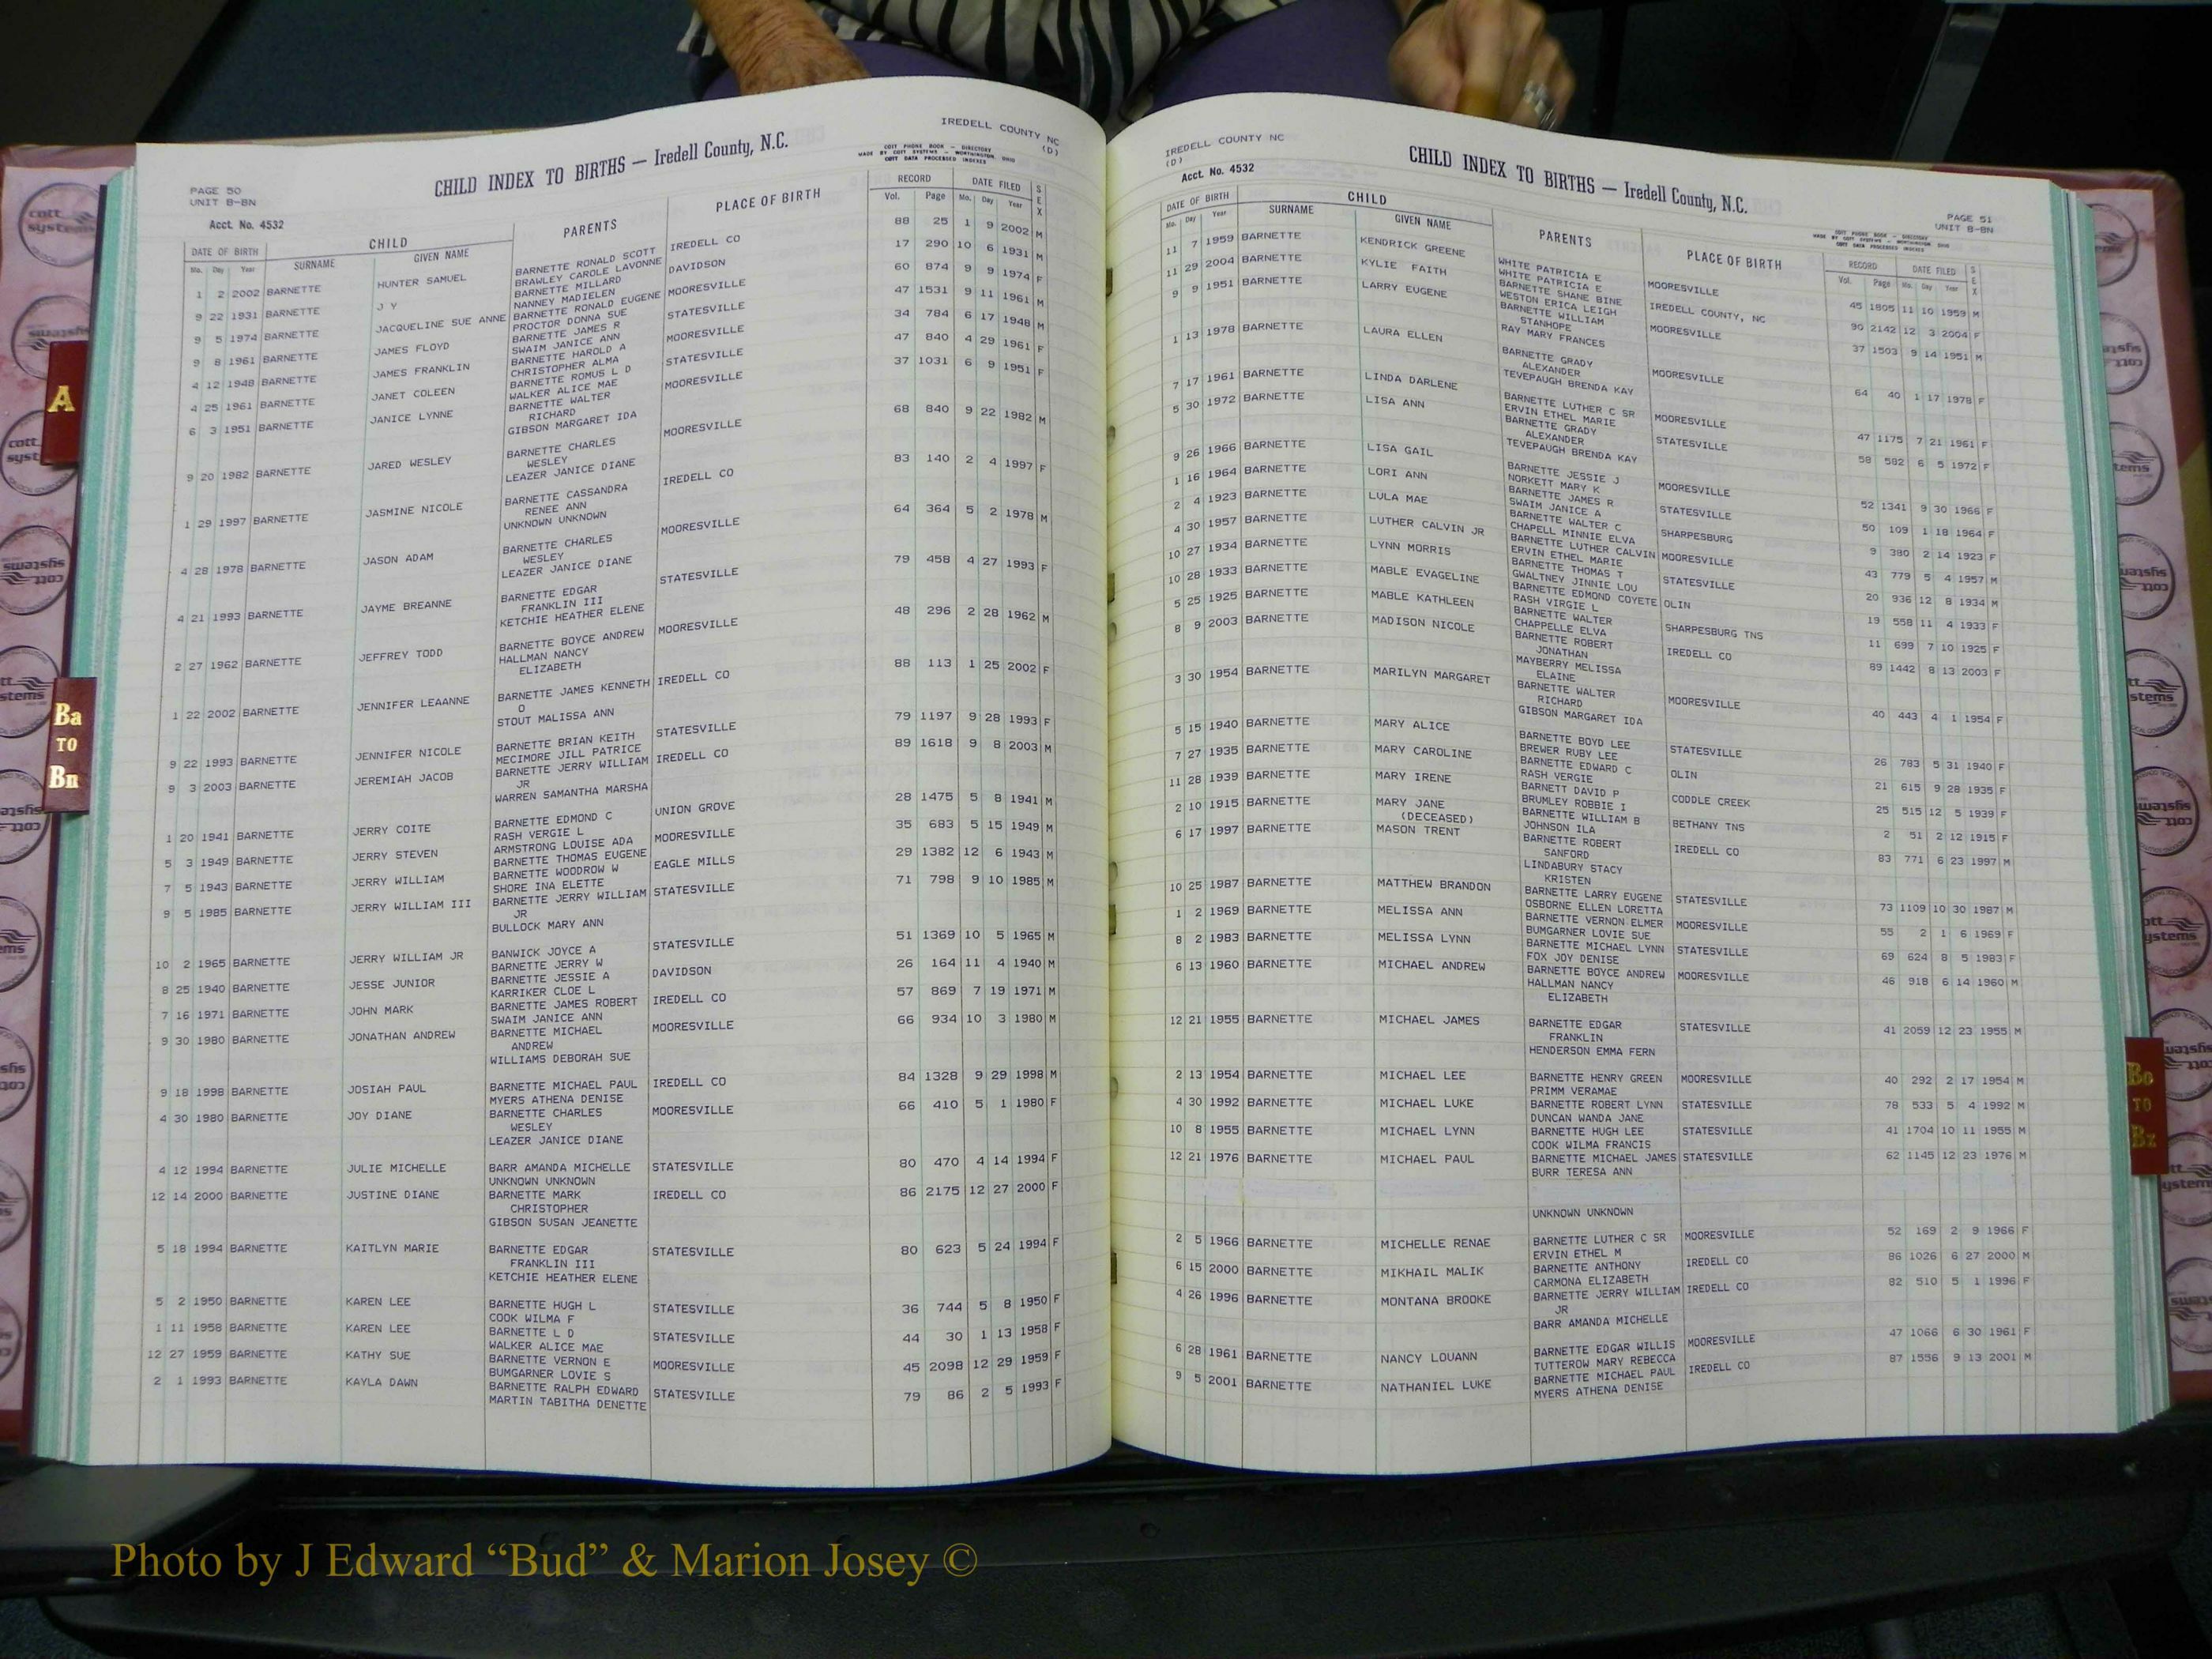 IREDELL COUNTY NC
(D)
CHILD INDEX TO BIRTHS — Iredell County, N.C.
COTT PHONE BOOK — DIRECTORY
MADE BY COTT SYSTEMS — WORTHINGTON, OHIO
COTT DATA PROCESSED INDEXES
PAGE 50
UNIT B-BN
Acct. No. 4532
DATE OF BIRTH CHILD PARENTS PLACE OF BIRTH RECORD DATE FILED SEX
Mo. Day Year SURNAME GIVEN NAME Vol. Page Mo. Day Year
1 2 2002 BARNETTE HUNTER SAMUEL BARNETTE RONALD SCOTT IREDELL CO 88 25 1 9 2002 M
BRAWLEY CAROLE LAVONNE
9 22 1931 BARNETTE J Y BARNETTE MILLARD DAVIDSON 17 290 10 6 1931 M
NANNEY MADIELEN
9 5 1974 BARNETTE JACQUELINE SUE ANNE BARNETTE RONALD EUGENE MOORESVILLE 60 874 9 9 1974 F
PROCTOR DONNA SUE
9 8 1961 BARNETTE JAMES FLOYD BARNETTE JAMES R STATESVILLE 47 1531 9 11 1961 M
SWAIM JANICE ANN
4 12 1948 BARNETTE JAMES FRANKLIN BARNETTE HAROLD A MOORESVILLE 34 784 6 17 1948 M
CHRISTOPHER ALMA
4 25 1961 BARNETTE JANET COLEEN BARNETTE ROMUS L D STATESVILLE 47 840 4 29 1961 F
WALKER ALICE MAE
6 3 1951 BARNETTE JANICE LYNNE BARNETTE WALTER MOORESVILLE 37 1031 6 9 1951 F
RICHARD
GIBSON MARGARET IDA
9 20 1982 BARNETTE JARED WESLEY BARNETTE CHARLES MOORESVILLE 68 840 9 22 1982 M
WESLEY
LEAZER JANICE DIANE
1 29 1997 BARNETTE JASMINE NICOLE BARNETTE CASSANDRA IREDELL CO 83 140 2 4 1997 F
RENEE ANN
UNKNOWN UNKNOWN
4 28 1978 BARNETTE JASON ADAM BARNETTE CHARLES MOORESVILLE 64 364 5 2 1978 M
WESLEY
LEAZER JANICE DIANE
4 21 1993 BARNETTE JAYME BREANNE BARNETTE EDGAR STATESVILLE 79 458 4 27 1993 F
FRANKLIN III
KETCHIE HEATHER ELENE
2 27 1962 BARNETTE JEFFREY TODD BARNETTE BOYCE ANDREW MOORESVILLE 48 296 2 28 1962 M
HALLMAN NANCY
ELIZABETH
1 22 2002 BARNETTE JENNIFER LEAANNE BARNETTE JAMES KENNETH IREDELL CO 88 113 1 25 2002 F
O
STOUT MALISSA ANN
9 22 1993 BARNETTE JENNIFER NICOLE BARNETTE BRIAN KEITH STATESVILLE 79 1197 9 28 1993 F
MECIMORE JILL PATRICE
9 3 2003 BARNETTE JEREMIAH JACOB BARNETTE JERRY WILLIAM IREDELL CO 89 1618 9 8 2003 M
JR
WARREN SAMANTHA MARSHA
1 20 1941 BARNETTE JERRY COITE BARNETTE EDMOND C UNION GROVE 28 1475 5 8 1941 M
RASH VERGIE L
5 3 1949 BARNETTE JERRY STEVEN ARMSTRONG LOUISE ADA MOORESVILLE 35 683 5 15 1949 M
BARNETTE THOMAS EUGENE
7 5 1943 BARNETTE JERRY WILLIAM BARNETTE WOODROW W EAGLE MILLS 29 1382 12 6 1943 M
SHORE INA ELETTE
9 5 1985 BARNETTE JERRY WILLIAM III BARNETTE JERRY WILLIAM STATESVILLE 71 798 9 10 1985 M
JR
BULLOCK MARY ANN
10 2 1965 BARNETTE JERRY WILLIAM JR BANWICK JOYCE A STATESVILLE 51 1369 10 5 1965 M
BARNETTE JERRY W
8 25 1940 BARNETTE JESSE JUNIOR BARNETTE JESSIE A DAVIDSON 26 164 11 4 1940 M
KARRIKER CLOE L
7 16 1971 BARNETTE JOHN MARK BARNETTE JAMES ROBERT IREDELL CO 57 869 7 19 1971 M
SWAIM JANICE ANN
9 30 1980 BARNETTE JONATHAN ANDREW BARNETTE MICHAEL MOORESVILLE 66 934 10 3 1980 M
ANDREW
WILLIAMS DEBORAH SUE
9 18 1998 BARNETTE JOSIAH PAUL BARNETTE MICHAEL PAUL IREDELL CO 84 1328 9 29 1998 M
MYERS ATHENA DENISE
4 30 1980 BARNETTE JOY DIANE BARNETTE CHARLES MOORESVILLE 66 410 5 1 1980 F
WESLEY
LEAZER JANICE DIANE
4 12 1994 BARNETTE JULIE MICHELLE BARR AMANDA MICHELLE STATESVILLE 80 470 4 14 1994 F
UNKNOWN UNKNOWN
12 14 2000 BARNETTE JUSTINE DIANE BARNETTE MARK IREDELL CO 86 2175 12 27 2000 F
CHRISTOPHER
GIBSON SUSAN JEANETTE
5 18 1994 BARNETTE KAITLYN MARIE BARNETTE EDGAR STATESVILLE 80 623 5 24 1994 F
FRANKLIN III
KETCHIE HEATHER ELENE
5 2 1950 BARNETTE KAREN LEE BARNETTE HUGH L STATESVILLE 36 744 5 8 1950 F
COOK WILMA F
1 11 1958 BARNETTE KAREN LEE BARNETTE L D STATESVILLE 44 30 1 13 1958 F
WALKER ALICE MAE
12 27 1959 BARNETTE KATHY SUE BARNETTE VERNON E MOORESVILLE 45 2098 12 29 1959 F
BUMGARNER LOVIE S
2 1 1993 BARNETTE KAYLA DAWN BARNETTE RALPH EDWARD STATESVILLE 79 86 2 5 1993 F
MARTIN TABITHA DENETTE
IREDELL COUNTY NC
(D)
Acct. No. 4532
CHILD INDEX TO BIRTHS — Iredell County, N.C.
PAGE 51
UNIT B-BN
COTT PHONE BOOK — DIRECTORY
MADE BY COTT SYSTEMS — WORTHINGTON, OHIO
COTT DATA PROCESSED INDEXES
DATE OF BIRTH CHILD PARENTS PLACE OF BIRTH RECORD DATE FILED SEX
Mo. Day Year SURNAME GIVEN NAME Vol. Page Mo. Day Year
11 7 1959 BARNETTE KENDRICK GREENE WHITE PATRICIA E MOORESVILLE 45 1805 11 10 1959 M
WHITE PATRICIA E
11 29 2004 BARNETTE KYLIE FAITH BARNETTE SHANE BINE IREDELL COUNTY, NC 90 2142 12 3 2004 F
WESTON ERICA LEIGH
9 9 1951 BARNETTE LARRY EUGENE BARNETTE WILLIAM MOORESVILLE 37 1503 9 14 1951 M
STANHOPE
RAY MARY FRANCES
1 13 1978 BARNETTE LAURA ELLEN BARNETTE GRADY MOORESVILLE 64 40 1 17 1978 F
ALEXANDER
TEVEPAUGH BRENDA KAY
7 17 1961 BARNETTE LINDA DARLENE BARNETTE LUTHER C SR MOORESVILLE 47 1175 7 21 1961 F
ERVIN ETHEL MARIE
5 30 1972 BARNETTE LISA ANN BARNETTE GRADY STATESVILLE 58 582 6 5 1972 F
ALEXANDER
TEVEPAUGH BRENDA KAY
9 26 1966 BARNETTE LISA GAIL BARNETTE JESSIE J MOORESVILLE 52 1341 9 30 1966 F
NORKETT MARY K
1 16 1964 BARNETTE LORI ANN BARNETTE JAMES R STATESVILLE 50 109 1 18 1964 F
SWAIM JANICE A
2 4 1923 BARNETTE LULA MAE BARNETTE WALTER C SHARPESBURG 9 380 2 14 1923 F
CHAPELL MINNIE ELVA
4 30 1957 BARNETTE LUTHER CALVIN JR BARNETTE LUTHER CALVIN MOORESVILLE 43 779 5 4 1957 M
ERVIN ETHEL MARIE
10 27 1934 BARNETTE LYNN MORRIS BARNETTE THOMAS T STATESVILLE 20 936 12 8 1934 M
GWALTNEY JINNIE LOU
10 28 1933 BARNETTE MABLE EVAGELINE BARNETTE EDMOND COYETE OLIN 19 558 11 4 1933 F
RASH VIRGIE L
5 25 1925 BARNETTE MABLE KATHLEEN BARNETTE WALTER SHARPESBURG TNS 11 699 7 10 1925 F
CHAPPELLE ELVA
8 9 2003 BARNETTE MADISON NICOLE BARNETTE ROBERT IREDELL CO 89 1442 8 13 2003 F
JONATHAN
MAYBERRY MELISSA
ELAINE
3 30 1954 BARNETTE MARILYN MARGARET BARNETTE WALTER MOORESVILLE 40 443 4 1 1954 F
RICHARD
GIBSON MARGARET IDA
5 15 1940 BARNETTE MARY ALICE BARNETTE BOYD LEE STATESVILLE 26 783 5 31 1940 F
BREWER RUBY LEE
7 27 1935 BARNETTE MARY CAROLINE BARNETTE EDWARD C OLIN 21 615 9 28 1935 F
RASH VERGIE
11 28 1939 BARNETTE MARY IRENE BARNETT DAVID P CODDLE CREEK 25 515 12 5 1939 F
BRUMLEY ROBBIE I
2 10 1915 BARNETTE MARY JANE BARNETTE WILLIAM B BETHANY TNS 2 51 2 12 1915 F
(DECEASED) JOHNSON ILA
6 17 1997 BARNETTE MASON TRENT BARNETTE ROBERT IREDELL CO 83 771 6 23 1997 M
SANFORD
LINDABURY STACY
KRISTEN
10 25 1987 BARNETTE MATTHEW BRANDON BARNETTE LARRY EUGENE STATESVILLE 73 1109 10 30 1987 M
OSBORNE ELLEN LORETTA
1 2 1969 BARNETTE MELISSA ANN BARNETTE VERNON ELMER MOORESVILLE 55 2 1 6 1969 F
BUMGARNER LOVIE SUE
8 2 1983 BARNETTE MELISSA LYNN BARNETTE MICHAEL LYNN STATESVILLE 69 624 8 5 1983 F
FOX JOY DENISE
6 13 1960 BARNETTE MICHAEL ANDREW BARNETTE BOYCE ANDREW MOORESVILLE 46 918 6 14 1960 M
HALLMAN NANCY
ELIZABETH
12 21 1955 BARNETTE MICHAEL JAMES BARNETTE EDGAR STATESVILLE 41 2059 12 23 1955 M
FRANKLIN
HENDERSON EMMA FERN
2 13 1954 BARNETTE MICHAEL LEE BARNETTE HENRY GREEN MOORESVILLE 40 292 2 17 1954 M
PRIMM VERAMAE
4 30 1992 BARNETTE MICHAEL LUKE BARNETTE ROBERT LYNN STATESVILLE 78 533 5 4 1992 M
DUNCAN WANDA JANE
10 8 1955 BARNETTE MICHAEL LYNN BARNETTE HUGH LEE STATESVILLE 41 1704 10 11 1955 M
COOK WILMA FRANCIS
12 21 1976 BARNETTE MICHAEL PAUL BARNETTE MICHAEL JAMES STATESVILLE 62 1145 12 23 1976 M
BURR TERESA ANN
UNKNOWN UNKNOWN
2 5 1966 BARNETTE MICHELLE RENAE BARNETTE LUTHER C SR MOORESVILLE 52 169 2 9 1966 F
ERVIN ETHEL M
6 15 2000 BARNETTE MIKHAIL MALIK BARNETTE ANTHONY IREDELL CO 86 1026 6 27 2000 M
CARMONA ELIZABETH
4 26 1996 BARNETTE MONTANA BROOKE BARNETTE JERRY WILLIAM IREDELL CO 82 510 5 1 1996 F
JR
BARR AMANDA MICHELLE
6 28 1961 BARNETTE NANCY LOUANN BARNETTE EDGAR WILLIS MOORESVILLE 47 1066 6 30 1961 F
TUTTEROW MARY REBECCA
9 5 2001 BARNETTE NATHANIEL LUKE BARNETTE MICHAEL PAUL IREDELL CO 87 1556 9 13 2001 M
MYERS ATHENA DENISE
A
Ba
TO
Bn
Bo
TO
Bz
cott
systems
Photo by J Edward “Bud” & Marion Josey ©